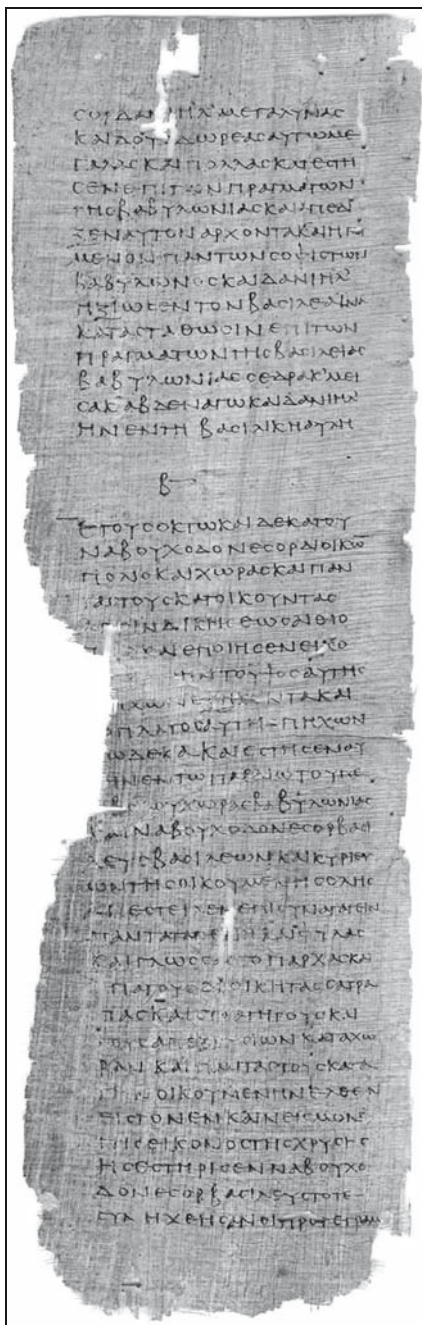 ϹΟΥΡΔΑΝΙΗΛ ΜΕΓΑΛΥΝΑϹ
ΚΑΙΔΟΥϹΔΩΡΕΑϹΑΥΤΩΜΕ
ΓΑΛΑϹΚΑΙΠΟΛΛΑϹΚΑΤΕϹΤΗ
ϹΕΝΕΠΙΤΩΝΠΡΑΓΜΑΤΩΝ
ΤΗϹΒΑΒΥΛΩΝΙΑϹΚΑΙΑΠΕΔΙ
ΞΕΝΑΥΤΟΝΑΡΧΟΝΤΑΚΑΙΗΓΟΥ
ΜΕΝΟΝΠΑΝΤΩΝϹΟΦΙϹΤΩΝ
ΒΑΒΥΛΩΝΟϹΚΑΙΔΑΝΙΗΛ
ΗΞΙΩϹΕΝΤΟΝΒΑϹΙΛΕΑΙΝΑ
ΚΑΤΑϹΤΑΘΩϹΙΝΕΠΙΤΩΝ
ΠΡΑΓΜΑΤΩΝΤΗϹΒΑϹΙΛΕΙΑϹ
ΒΑΒΥΛΩΝΙΑϹϹΕΔΡΑΚ'ΜΕΙ
ϹΑΚ'ΑΒΔΕΝΑΓΩΚΑΙΔΑΝΙΗΛ
ΗΝΕΝΤΗ ΒΑϹΙΛΙΚΗΑΥΛΗ
Β
ΕΤΟΥϹΟΚΤΩΚΑΙΔΕΚΑΤΟΥ
ΝΑΒΟΥΧΟΔΟΝΕϹΟΡΔΙΟΙΚΩ̅
ΠΟΛΙϹΚΑΙΧΩΡΑϹΚΑΙΠΑΝ
ΤΑϹΤΟΥϹΚΑΤΟΙΚΟΥΝΤΑϹ
ΙΝΔΙΚΗϹΕΩϹΑΙΘΙΟ
ΑΝΕΠΟΙΗϹΕΝΕΙΚΟ
ΗΝΤΟΥΨΟϹΑΥΤΗϹ
ΠΗΧΩΝΕΞΗΚΟΝΤΑΚΑΙ
ΠΛΑΤΟϹΑΥΤΗϹΠΗΧΩΝ
ΩΔΕΚΑΚΑΙΕϹΤΗϹΕΝΑΥ
ΗΝΕΝΤΩΠΕΔΙΩΤΟΥΠΕ
ΟΥΧΩΡΑϹΒΑΒΥΛΩΝΙΑϹ
ΚΑΙΝΑΒΟΥΧΟΔΟΝΕϹΟΡΒΑϹΙ
ΛΕΥϹΒΑϹΙΛΕΩΝΚΑΙΚΥΡΙΕΥ
ΩΝΤΗϹΟΙΚΟΥΜΕΝΗϹΟΛΗϹ
ΑΠΕϹΤΕΙΛΕΝΕΠΙϹΥΝΑΓΑΓΕΙΝ
ΠΑΝΤΑΤΑΕΘΝΗΚΑΙΦΥΛΑϹ
ΚΑΙΓΛΩϹϹΑϹΤΟΠΑΡΧΑϹΚΑΙ
ΠΑΤΟΥϹΔΙΟΙΚΗΤΑϹϹΑΤΡΑ
ΠΑϹΚΑΙϹΤΡΑΤΗΓΟΥϹΚΑΙ
ΤΟΥϹΕΠΕΞΟΥϹΙΩΝΚΑΤΑΧΩ
ΡΑΝ ΚΑΙΠΑΝΤΑϹΤΟΥϹΚΑΤΑ
ΤΗΝΟΙΚΟΥΜΕΝΗΝΕΛΘΕΙΝ
ΕΙϹΤΟΝΕΝΚΑΙΝΕΙϹΜΟΝ
ΤΗϹΕΙΚΟΝΟϹΤΗϹΧΡΥϹΗϹ
ΗϹΕϹΤΗΡΙϹΕΝΝΑΒΟΥΧΟ
ΔΟΝΕϹΟΡΒΑϹΙΛΕΥϹΤΟΤΕ